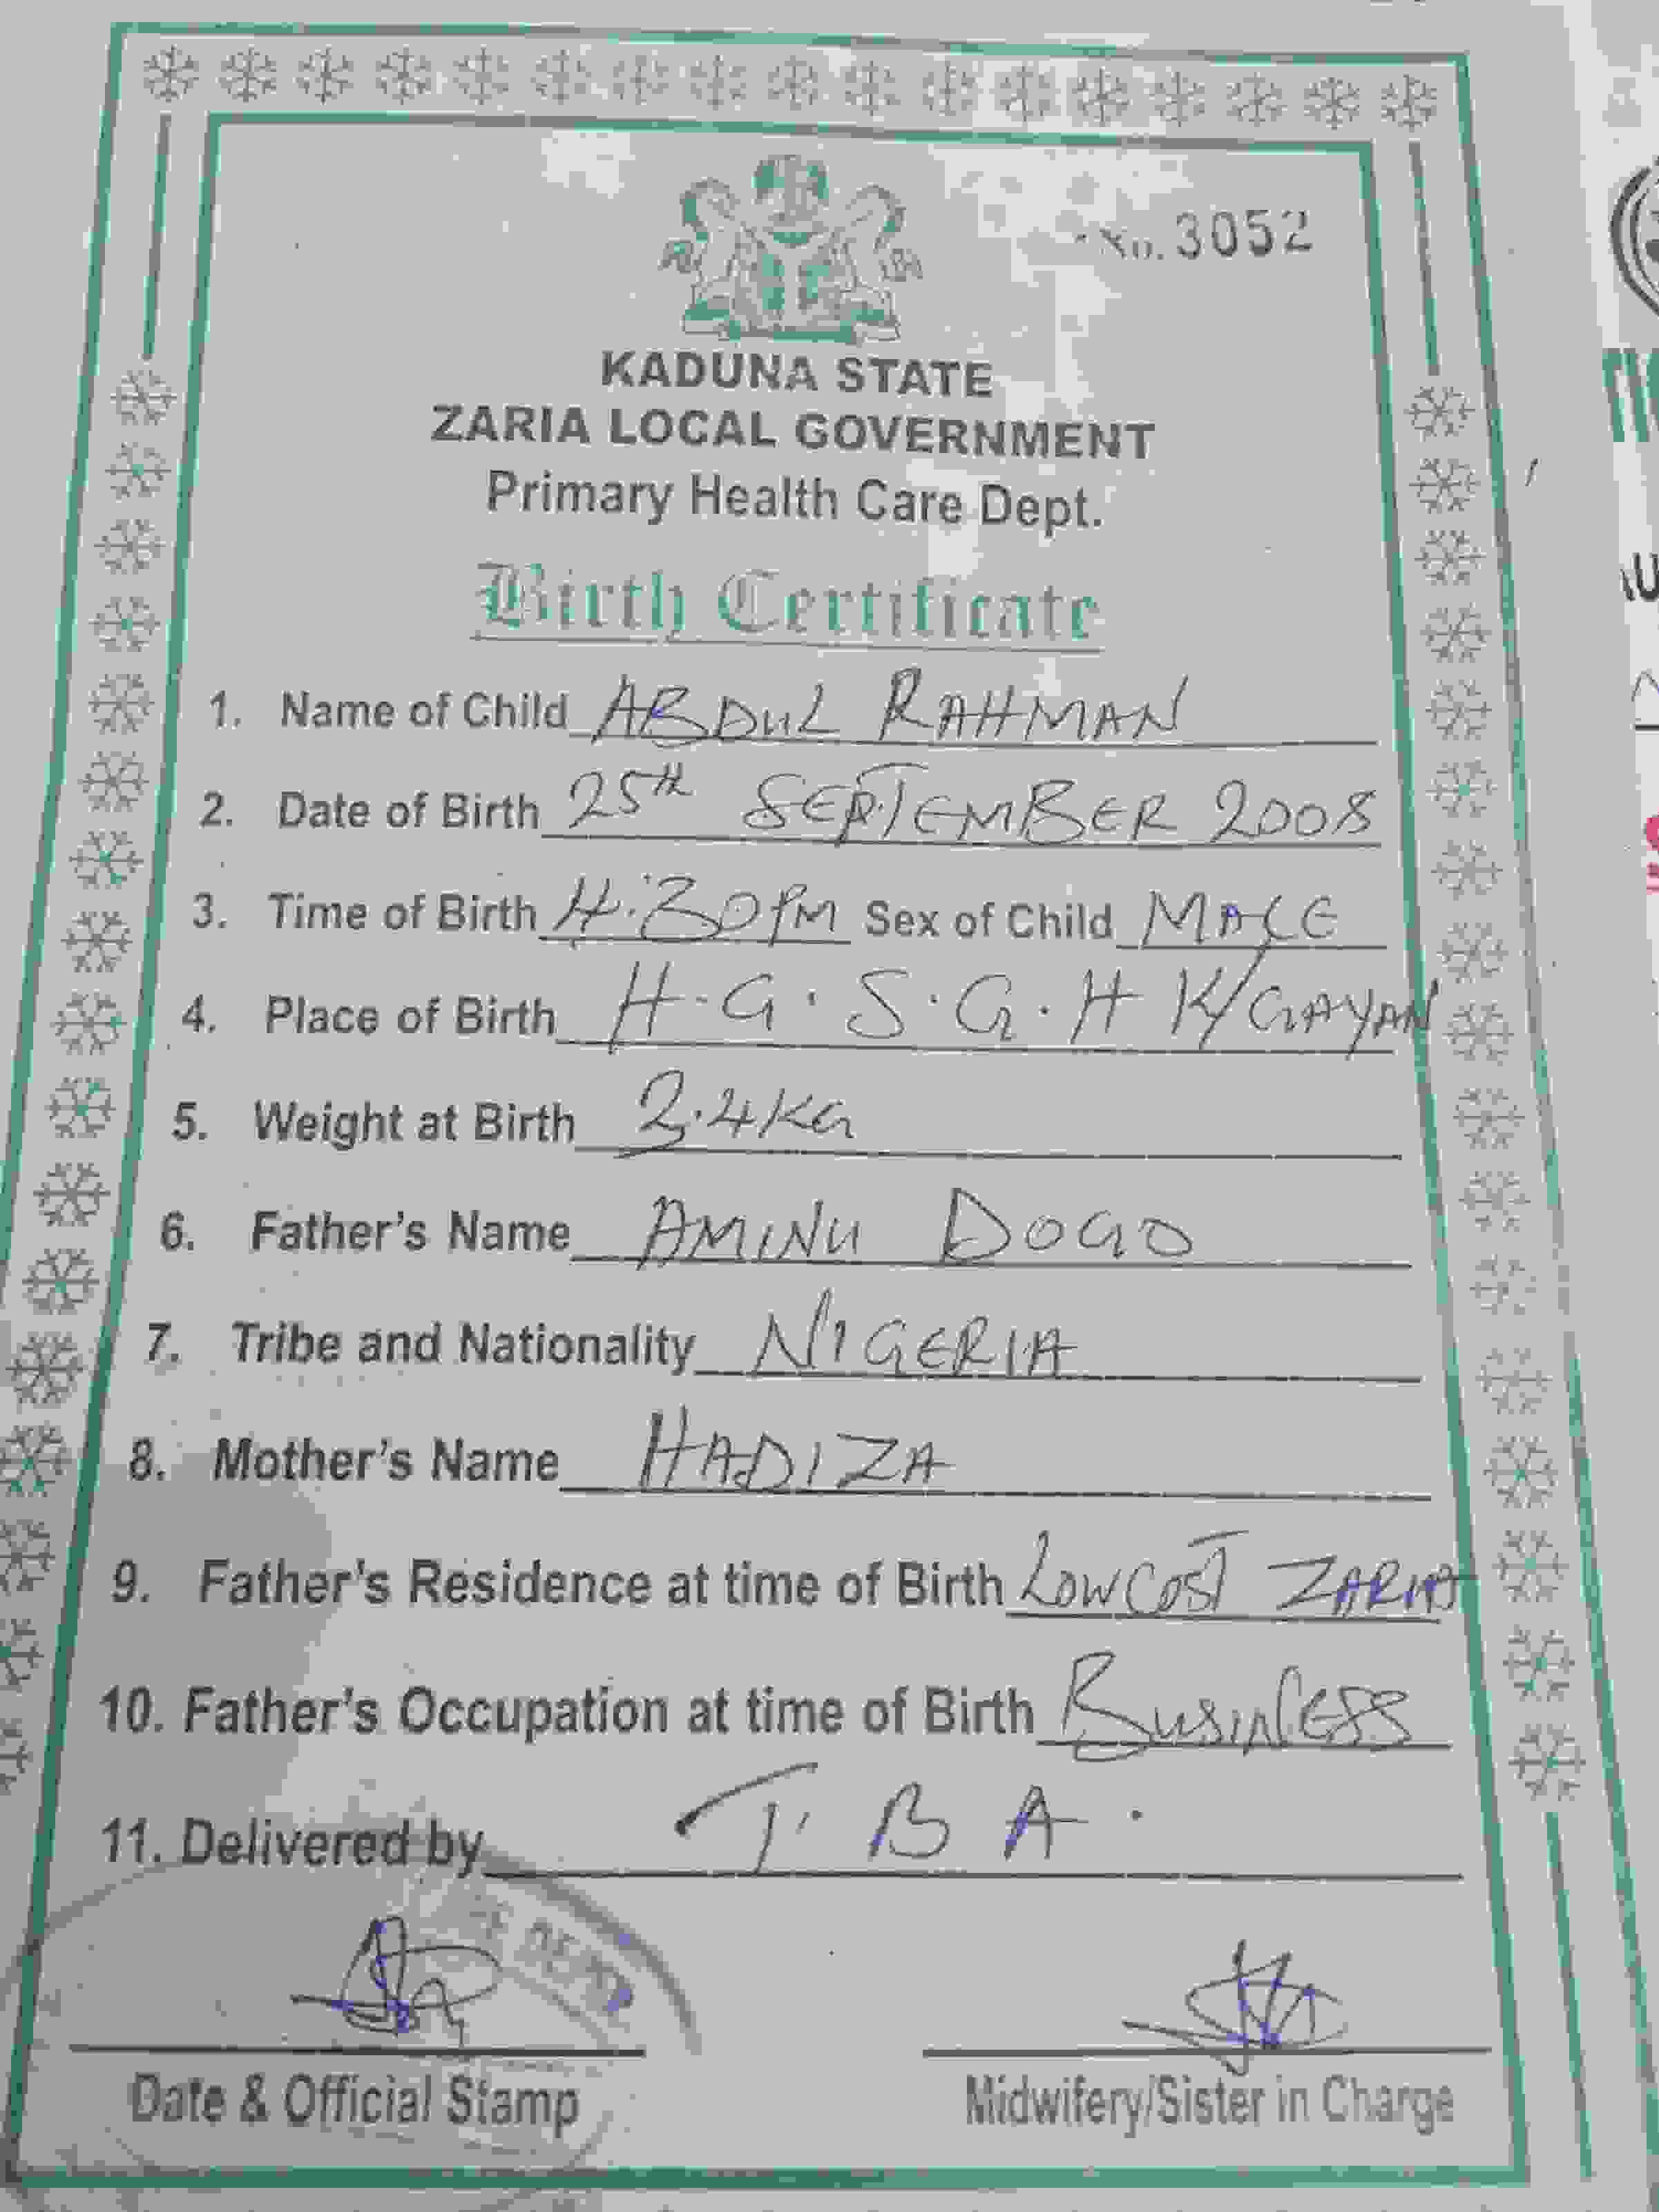 No. 3052
KADUNA STATE
ZARIA LOCAL GOVERNMENT
Primary Health Care Dept.
Birth Certificate
1. Name of Child ABDUL RAHMAN
2. Date of Birth 25th SEPTEMBER 2008
3. Time of Birth 4:30PM Sex of Child MALE
4. Place of Birth H.G.S.G.H K/GAYAN
5. Weight at Birth 2.4KG
6. Father's Name AMINU DOGO
7. Tribe and Nationality NIGERIA
8. Mother's Name HADIZA
9. Father's Residence at time of Birth LOWCOST ZARIA
10. Father's Occupation at time of Birth BUSINESS
11. Delivered by T B A.
Date & Official Stamp Midwifery/Sister in Charge